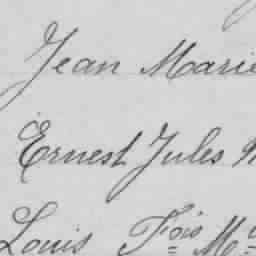 Jean Marie
Ernest Jules
Louis Fois Ma